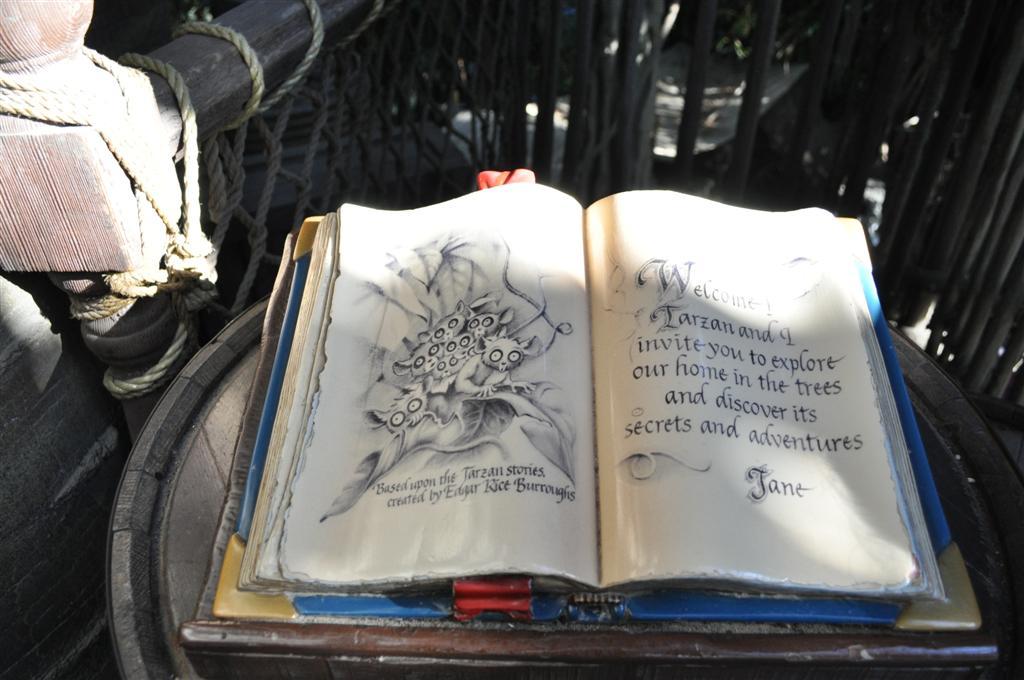 Based upon the Tarzan stories,
created by Edgar Rice Burroughs
Welcome!
Tarzan and I
invite you to explore
our home in the trees
and discover its
secrets and adventures
Jane